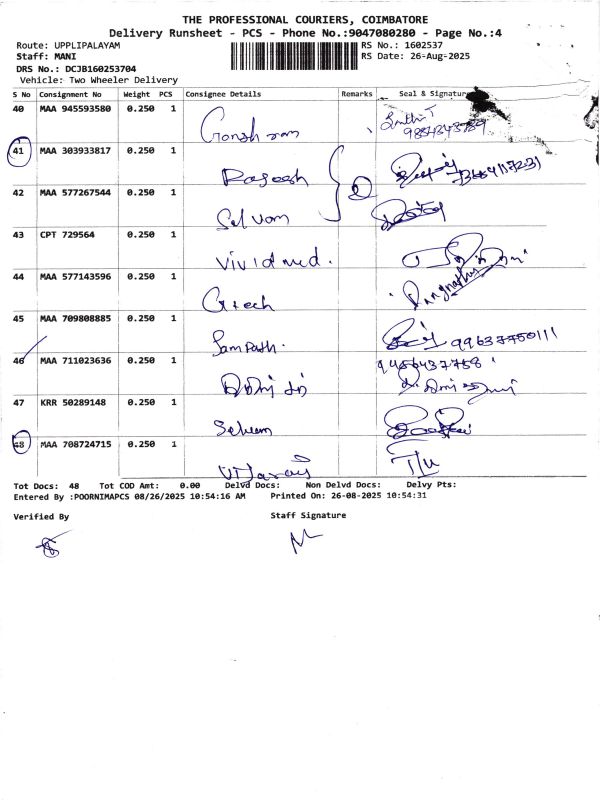 THE PROFESSIONAL COURIERS, COIMBATORE
Delivery Runsheet - PCS - Phone No.:9047080280 - Page No.:4
Route: UPPLIPALAYAM RS No.: 1602537
Staff: MANI RS Date: 26-Aug-2025
DRS No.: DCJB160253704
Vehicle: Two Wheeler Delivery
S No Consignment No Weight PCS Consignee Details Remarks Seal & Signature
40 MAA 945593580 0.250 1
41 MAA 303933817 0.250 1 Ragesh
42 MAA 577267544 0.250 1 Selvam
43 CPT 729564 0.250 1 Vivid med.
44 MAA 577143596 0.250 1 Gtech
45 MAA 709808885 0.250 1 Sampath. 99637750111
46 MAA 711023636 0.250 1 9486437758
47 KRR 50289148 0.250 1 Selvam
48 MAA 708724715 0.250 1 T/u
Tot Docs: 48 Tot COD Amt: 0.00 Delvd Docs: Non Delvd Docs: Delvy Pts:
Entered By :POORNIMAPCS 08/26/2025 10:54:16 AM Printed On: 26-08-2025 10:54:31
Verified By Staff Signature